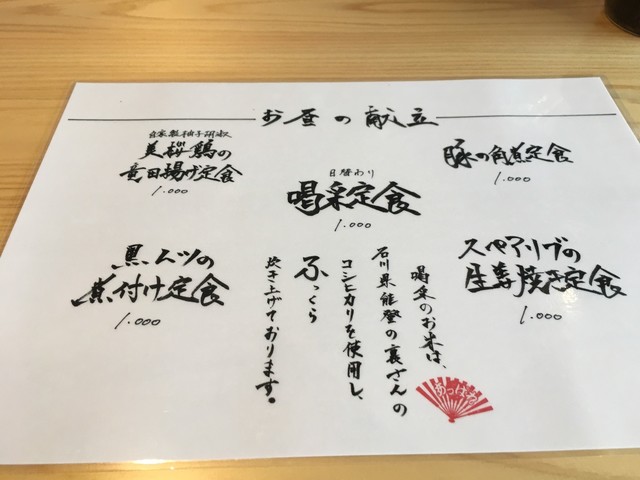 お昼の献立
自家製柚子胡椒
美桜鶏の
竜田揚げ定食
1.000
日替わり
喝采定食
1.000
豚の角煮定食
1.000
黒ムツの
煮付け定食
1.000
スペアリブの
生姜焼き定食
1.000
喝采のお米は、
石川県能登の裏さんの
コシヒカリを使用し、
ふっくら
炊き上げております。
あっぱれ